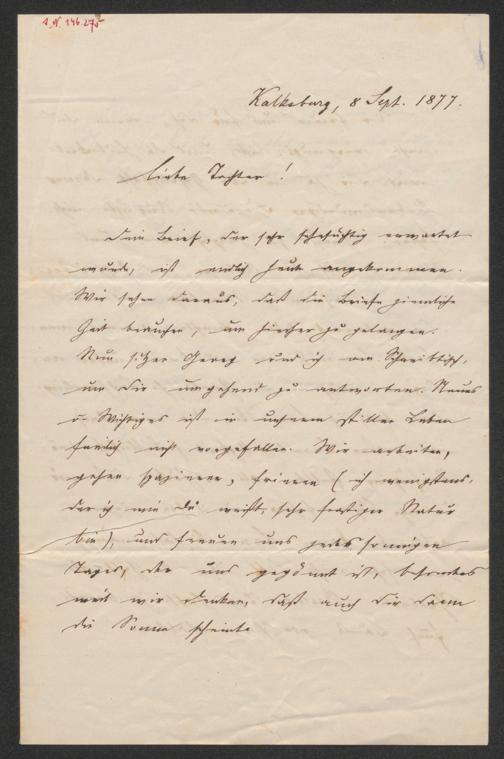 A. N. 146.275
Kalksburg, 8 Sept. 1877.
Liebe Tochter!
Dein Brief, der sehr sehnsüchtig erwartet
wurde, ist endlich heute angekommen.
Wir sehen daraus, daß die Briefe ziemliche
Zeit brauchen, um hierher zu gelangen.
Nun sitzen Georg und ich am Schreibtisch,
um Dir umgehend zu antworten. Neues
u. Wichtiges ist in unserem stillen Leben
freilich nicht vorgefallen. Wir arbeiten,
gehen spazieren, frieren (ich wenigstens,
der ich wie Du weißt, sehr frostiger Natur
bin), und freuen uns jedes sonnigen
Tages, der uns gegönnt ist, besonders
weil wir denken, daß auch Dir dann
die Sonne scheint.